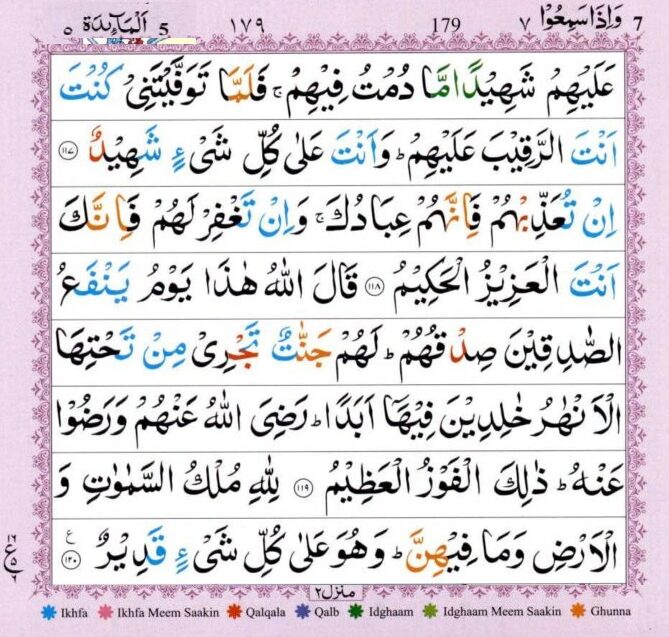 وَاِذَا سَمِعُوْا ٧ 7 179 ١٧٩ اَلْمَآىِٕدَة ٥ 5
عَلَيْهِمْ شَهِيْدًا مَّا دُمْتُ فِيْهِمْ ۚ فَلَمَّا تَوَفَّيْتَنِيْ كُنْتَ
اَنْتَ الرَّقِيْبَ عَلَيْهِمْ ؕ وَاَنْتَ عَلٰى كُلِّ شَيْءٍ شَهِيْدٌ ١١٧
اِنْ تُعَذِّبْهُمْ فَاِنَّهُمْ عِبَادُكَ ۚ وَاِنْ تَغْفِرْ لَهُمْ فَاِنَّكَ
اَنْتَ الْعَزِيْزُ الْحَكِيْمُ ١١٨ قَالَ اللّٰهُ هٰذَا يَوْمُ يَنْفَعُ
الصّٰدِقِيْنَ صِدْقُهُمْ ؕ لَهُمْ جَنّٰتٌ تَجْرِيْ مِنْ تَحْتِهَا
الْاَنْهٰرُ خٰلِدِيْنَ فِيْهَاۤ اَبَدًا ؕ رَضِيَ اللّٰهُ عَنْهُمْ وَرَضُوْا
عَنْهُ ؕ ذٰلِكَ الْفَوْزُ الْعَظِيْمُ ١١٩ لِلّٰهِ مُلْكُ السَّمٰوٰتِ وَ
الْاَرْضِ وَمَا فِيْهِنَّ ؕ وَهُوَ عَلٰى كُلِّ شَيْءٍ قَدِيْرٌ ١٢٠ ع
منزل ٢
Ikhfa Ikhfa Meem Saakin Qalqala Qalb Idghaam Idghaam Meem Saakin Ghunna